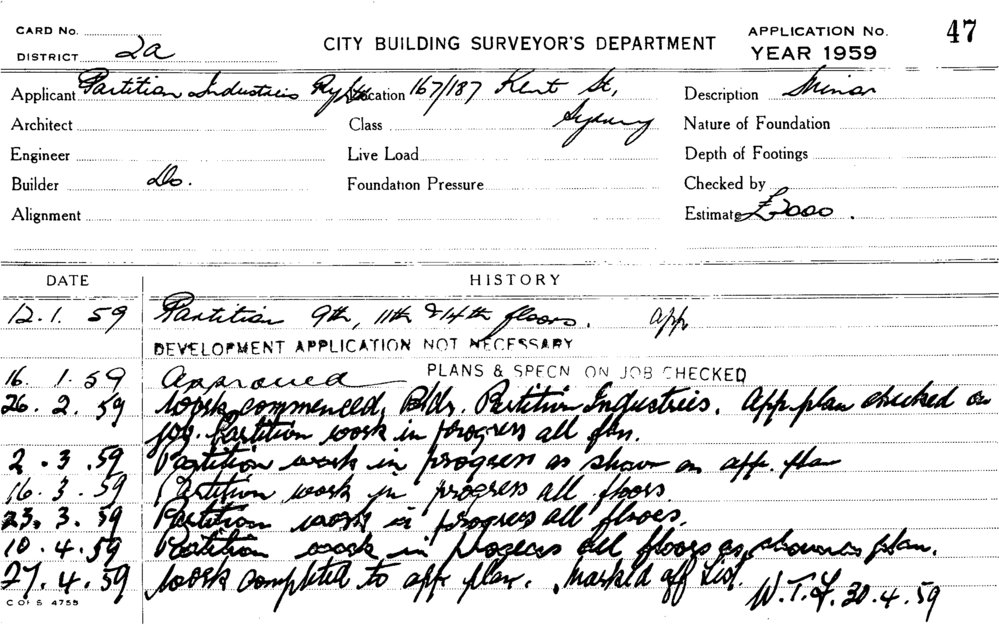 CARD No.
DISTRICT 2a
CITY BUILDING SURVEYOR'S DEPARTMENT
APPLICATION No. 47
YEAR 1959
Applicant Partition Industries Pty Ltd Location 167/187 Kent St, Sydney
Description Minor
Architect
Class
Nature of Foundation
Engineer
Live Load
Depth of Footings
Builder Do.
Foundation Pressure
Checked by
Alignment
Estimate £2000.
DATE HISTORY
12.1.59 Partition 9th, 11th & 14th floors. app
DEVELOPMENT APPLICATION NOT NECESSARY
PLANS & SPECN ON JOB CHECKED
16.1.59 Approved
26.2.59 Work commenced, Bldr. Partition Industries. App. plan checked on
job. Partition work in progress all flrs.
2.3.59 Partition work in progress as shown on app. plan
16.3.59 Partition work in progress all floors
23.3.59 Partition work in progress all floors.
10.4.59 Partition work in progress all floors as shown on plan.
27.4.59 Work completed to app. plan. Marked off List.
W.T.F. 30.4.59
C OF S 4755